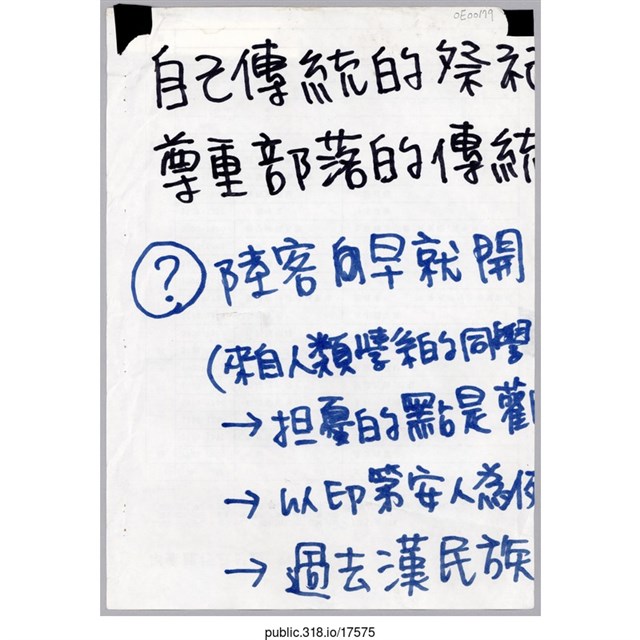 OE00179
自己傳統的祭祀
尊重部落的傳統
? 陸客自早就開
(來自人類學系的同學
→ 担憂的點是觀
→ 以印第安人為例
→ 過去漢民族
public.318.io/17575